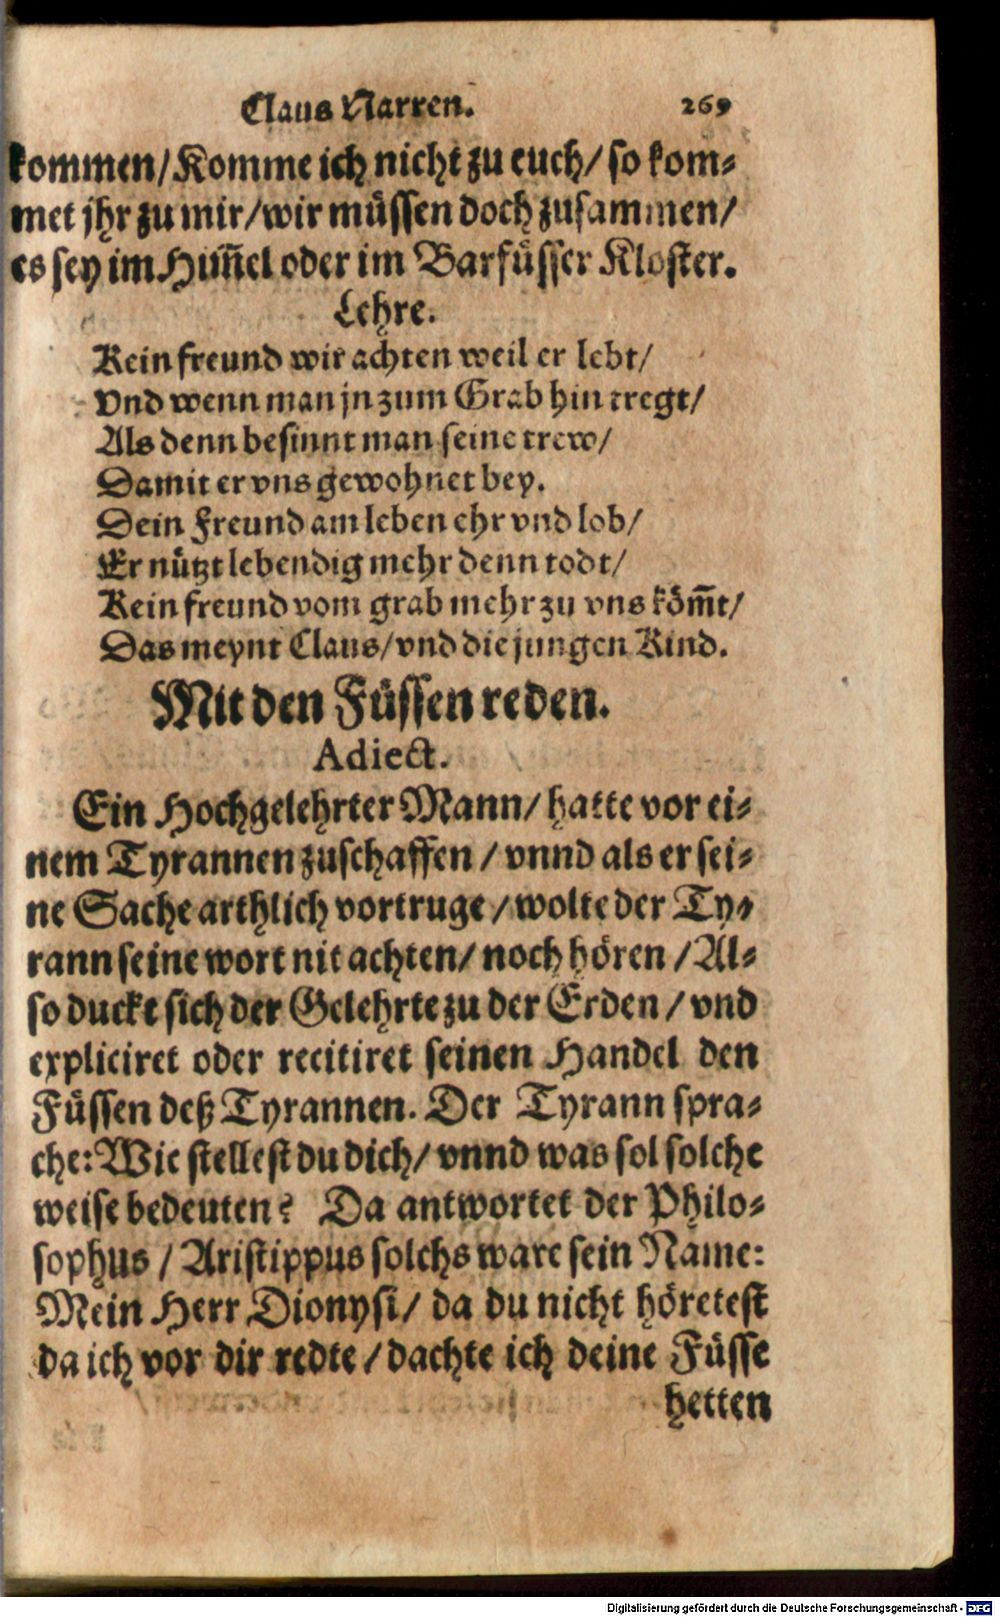 Claus Narren. 269
kommen/Komme ich nicht zu euch/ so kom⸗
met jhr zu mir/wir müssen doch zusammen/
es sey im Him̃el oder im Barfüsser Kloster.
Lehre.
Kein freund wir achten weil er lebt/
Vnd wenn man jn zum Grab hin tregt/
Als denn besinnt man seine trew/
Damit er vns gewohnet bey.
Dein Freund am leben ehr vnd lob/
Er nützt lebendig mehr denn todt/
Kein freund vom grab mehr zu vns köm̃t/
Das meynt Claus/vnd die jungen Kind.
Mit den Füssen reden.
Adiect.
Ein Hochgelehrter Mann/ hatte vor ei⸗
nem Tyrannen zuschaffen / vnnd als er sei⸗
ne Sache arthlich vortruge / wolte der Ty⸗
rann seine wort nit achten/ noch hören / Al⸗
so duckt sich der Gelehrte zu der Erden / vnd
expliciret oder recitiret seinen Handel den
Füssen deß Tyrannen. Der Tyrann spra⸗
che: Wie stellest du dich/ vnnd was sol solche
weise bedeuten? Da antwortet der Philo⸗
sophus / Aristippus solchs ware sein Name:
Mein Herr Dionysi/ da du nicht höretest
da ich vor dir redte / dachte ich deine Füsse
hetten
Digitalisierung gefördert durch die Deutsche Forschungsgemeinschaft - DFG